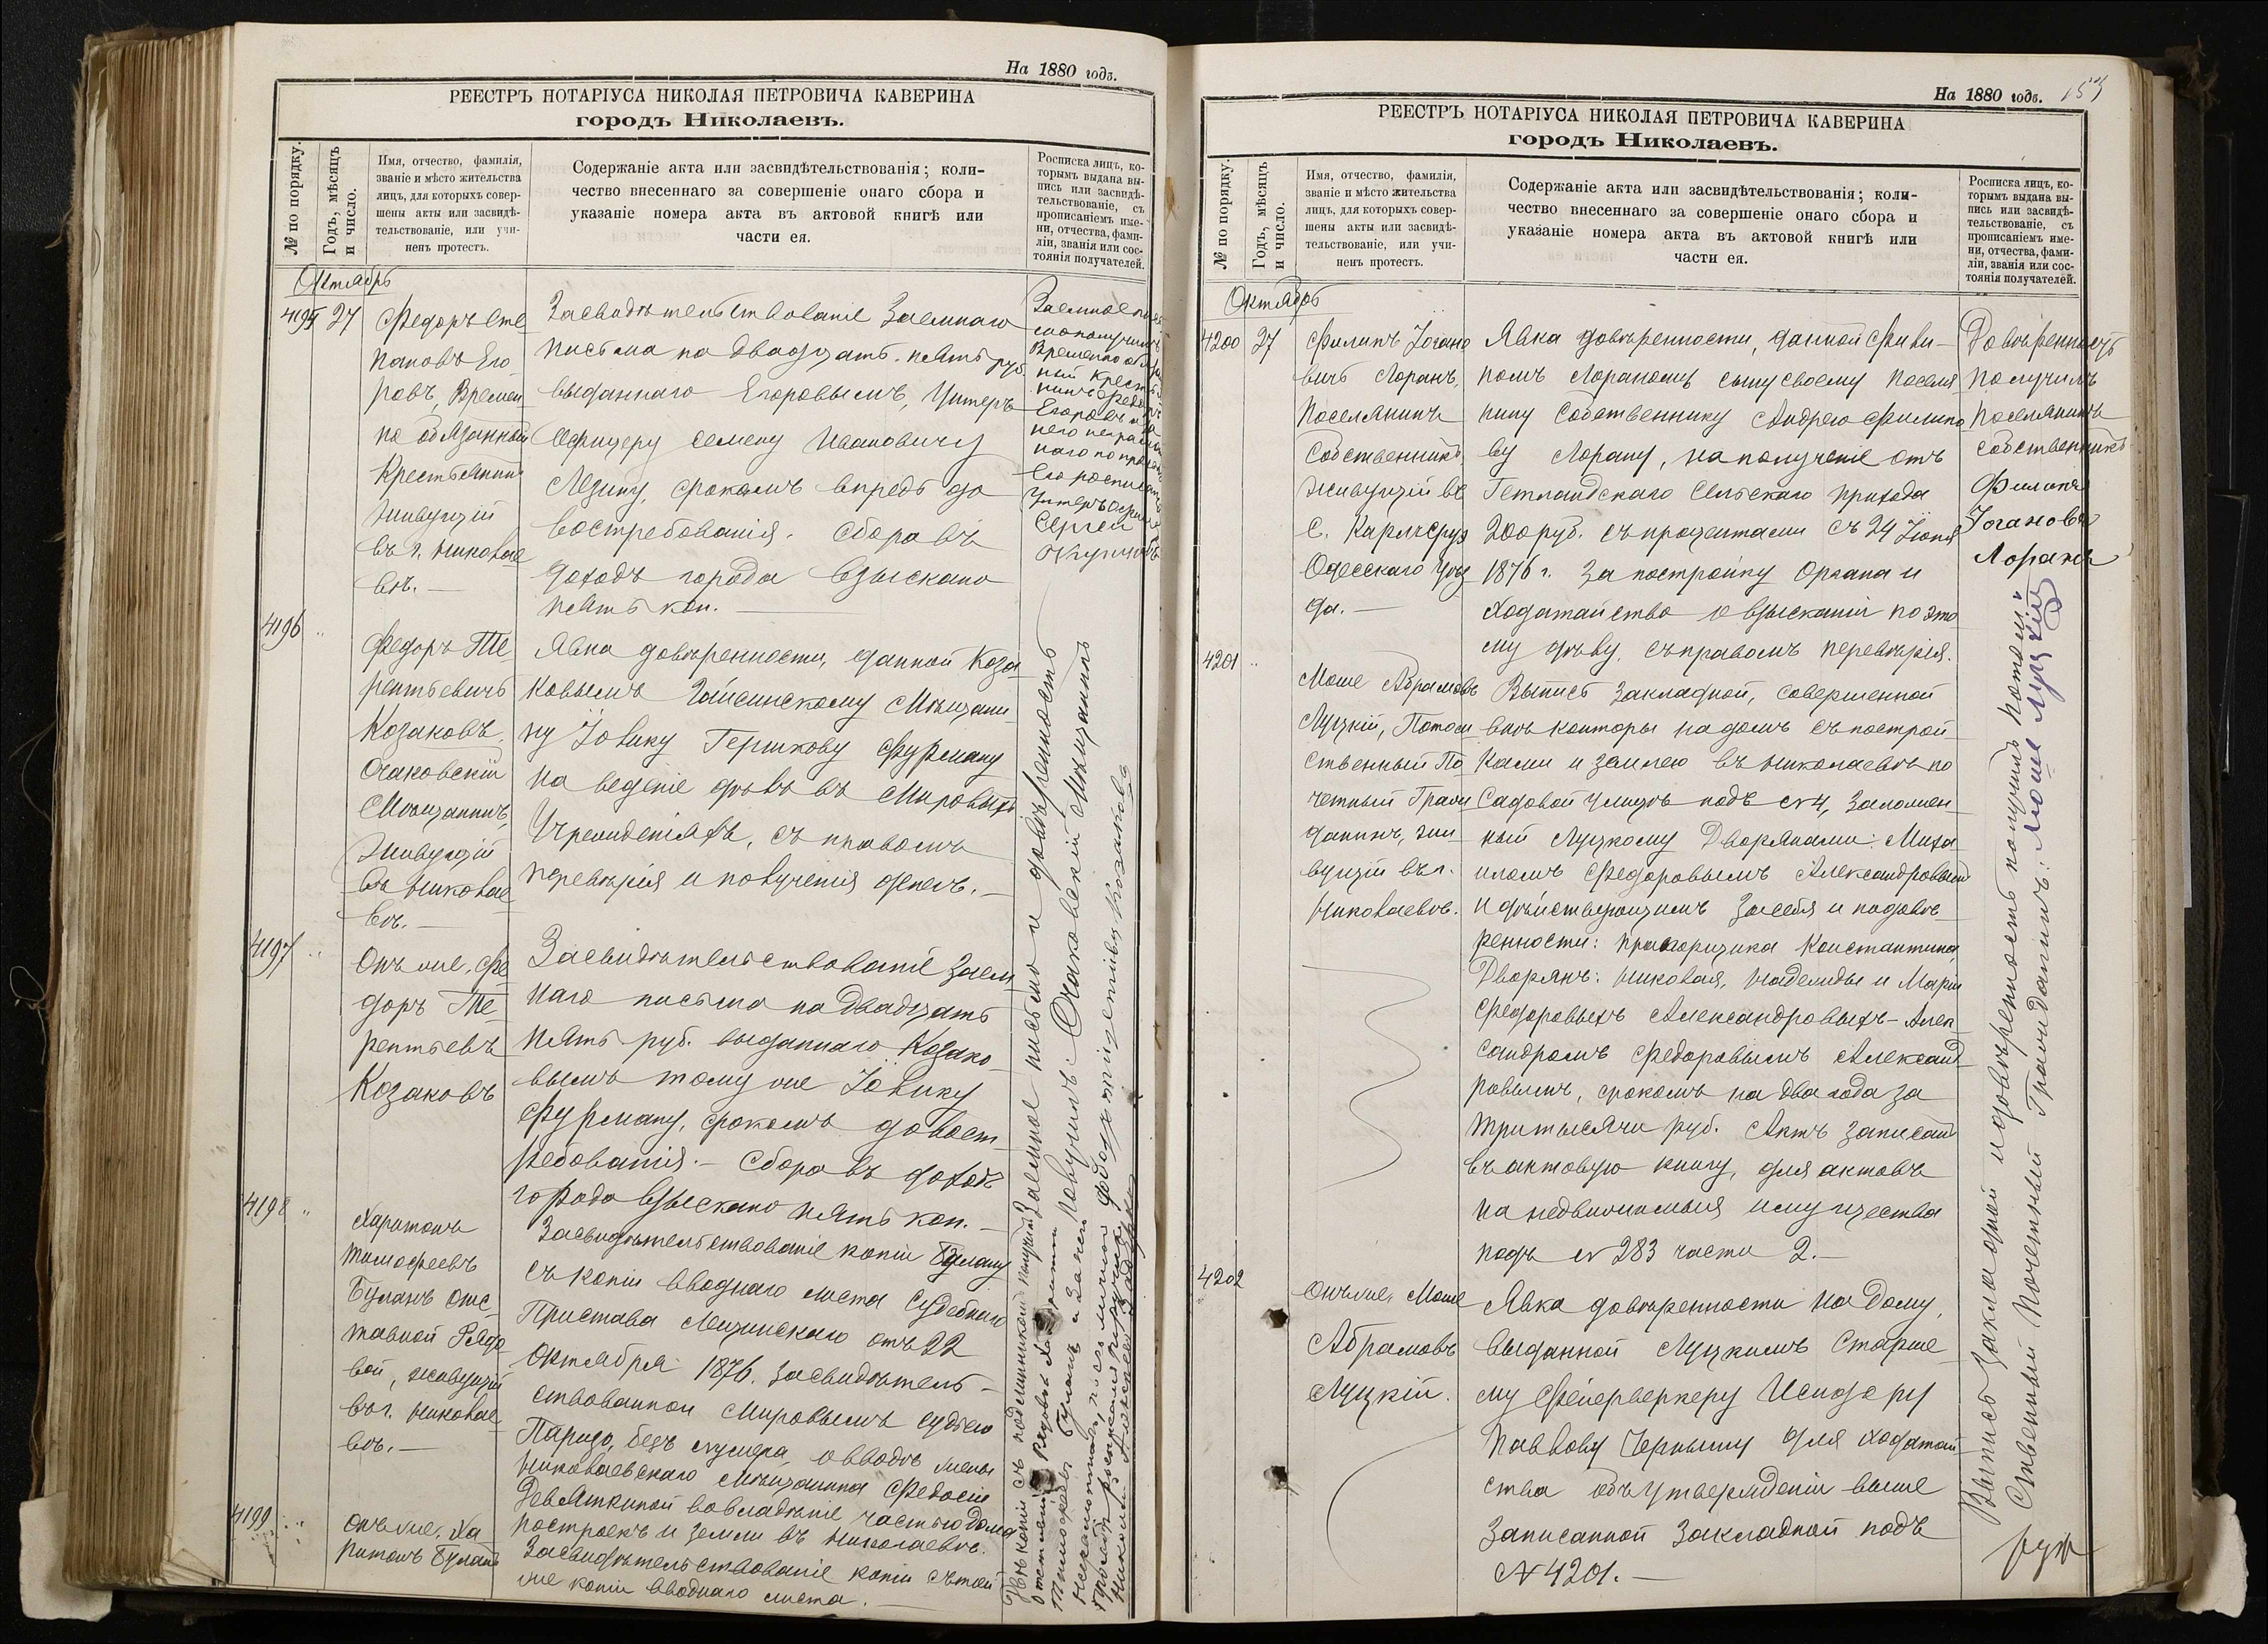 На 1880 годъ.
РЕЕСТРЪ НОТАРІУСА НИКОЛАЯ ПЕТРОВИЧА КАВЕРИНА
городъ Николаевъ.
№ по порядку.
Годъ, мѣсяцъ
и число.
Имя, отчество, фамилія,
званіе и мѣсто жительства
лицъ, для которыхъ совер-
шены акты или засвидѣ-
тельствованіе, или учи-
ненъ протестъ.
Содержаніе акта или засвидѣтельствованія; коли-
чество внесеннаго за совершеніе онаго сбора и
указаніе номера акта въ актовой книгѣ или
части ея.
Росписка лицъ, ко-
торымъ выдана вы-
пись или засвидѣ-
тельствованіе, съ
прописаніемъ име-
ни, отчества, фами-
ліи, званія или сос-
тоянія получателей.
Октябрь
4195 27
Федоръ Сте
пановъ Его
ровъ, Времен
но обязанный
Крестьянинъ
живущій
въ г. Николае
вѣ.—
Засвидѣтельствованіе Заемнаго
письма на двадцать пять руб.
выданнаго Егоровымъ, Унтеръ
Офицеру Семену Ивановичу
Лезину, срокомъ впредь до
востребованія. Сбора въ
доходъ города взыскано
пять коп.—
Заемное
получилъ
Временно
Егоровъ
него неграмот
наго по
его росписался
Унтеръ
Сергей
4196 "
Федоръ Те
рентьевичъ
Козаковъ,
Очаковскій
Мѣщанинъ,
живущій
въ Николае
вѣ.—
Явка довѣренности, данной Коза
ковымъ Гайсинскому Мѣщани
ну Іовику Гершкову Фурману
на веденіе дѣлъ въ Мировыхъ
Учрежденіяхъ, съ правомъ
перевѣрія и полученія денегъ.—
4197 "
Онъ же, Фе
доръ Те
рентьевъ
Козаковъ
Засвидѣтельствованіе Заем
наго письма на двадцать
пять руб. выданнаго Козако
вымъ тому же Іовику
Фурману, срокомъ до вост
ребованія.— Сбора въ доходъ
города взыскано пять коп.—
Заемное письмо и довѣренность
получилъ: Очаковскій Мѣщанинъ
Козаковъ
4198 "
Харитонъ
Тимофеевъ
Буланъ отс
тавной Рядо
вой, живущій
въ г. Николае
вѣ.—
Засвидѣтельствованіе копіи Булану
съ копіи вводнаго листа Судебнаго
Пристава Лещинскаго отъ 22
Октября 1876. засвидѣтель-
ствованной Мировымъ Судьею
Паридо, безъ нумера, о вводѣ жены
Николаевскаго Мѣщанина Федосіи
Девяткиной во владѣніе частью дома
построекъ и земли въ Николаевѣ.
4199 "
Онъ же, Ха
ритонъ Буланъ
Засвидѣтельствованіе копіи съ той
же копіи вводнаго листа.—
Двѣ копіи съ подлинникомъ получилъ
На 1880 годъ. 153
РЕЕСТРЪ НОТАРІУСА НИКОЛАЯ ПЕТРОВИЧА КАВЕРИНА
городъ Николаевъ.
№ по порядку.
Годъ, мѣсяцъ
и число.
Имя, отчество, фамилія,
званіе и мѣсто жительства
лицъ, для которыхъ совер-
шены акты или засвидѣ-
тельствованіе, или учи-
ненъ протестъ.
Содержаніе акта или засвидѣтельствованія; коли-
чество внесеннаго за совершеніе онаго сбора и
указаніе номера акта въ актовой книгѣ или
части ея.
Росписка лицъ, ко-
торымъ выдана вы-
пись или засвидѣ-
тельствованіе, съ
прописаніемъ име-
ни, отчества, фами-
ліи, званія или сос-
тоянія получателей.
Октябрь
4200 27
Филипъ Іогано
вичъ Лоранъ,
Поселянинъ
Собственникъ,
живущій въ
С. Карлсруэ
Одесскаго Уѣз
да.—
Явка довѣренности, данной Фили-
помъ Лораномъ сыну своему Поселя
нину Собственнику Андрею Филипо
ву Лорану, на полученіе отъ
Гетландскаго Сельскаго прихода
200 руб. съ процентами съ 24 Іюня
1876 г. за постройку Органа и
ходатайство о взысканіи по это
му дѣлу, съ правомъ перевѣрія.
Довѣренность
получилъ
поселянинъ
собственникъ
Филипъ
Іогановъ
Лоранъ
4201 "
Моше Абрамовъ
Луцкій, Потом
ственный По
четный Граж
данинъ, жи-
вущій въ г.
Николаевѣ.
Выпись Закладной, совершенной
внѣ конторы на домъ съ построй
ками и землею въ Николаевѣ по
Садовой улицѣ подъ № 4, заложен
ный Луцкому Дворянами: Миха
иломъ Федоровымъ Александровымъ
и дѣйствующимъ за себя и по довѣ
ренности: прапорщика Константина,
Дворянъ: Николая, Надежды и Маріи
Федоровыхъ Александровыхъ - Алек
сандромъ Федоровымъ Александ
ровымъ, срокомъ на два года за
три тысячи руб. Актъ записанъ
въ актовую книгу, для актовъ
на недвижимыя имущества
подъ № 283 части 2.—
4202
Онъ же, Моше
Абрамовъ
Луцкій.
Явка довѣренности на дому,
выданной Луцкимъ Старше
му Фейерверкеру Исидору
Павлову Черныму для ходатай
ства объ утвержденіи выше
записанной Закладной подъ
№ 4201.—
Выпись закладной и довѣренность получилъ Потом
ственный Почетный Гражданинъ: Моше Луцкій